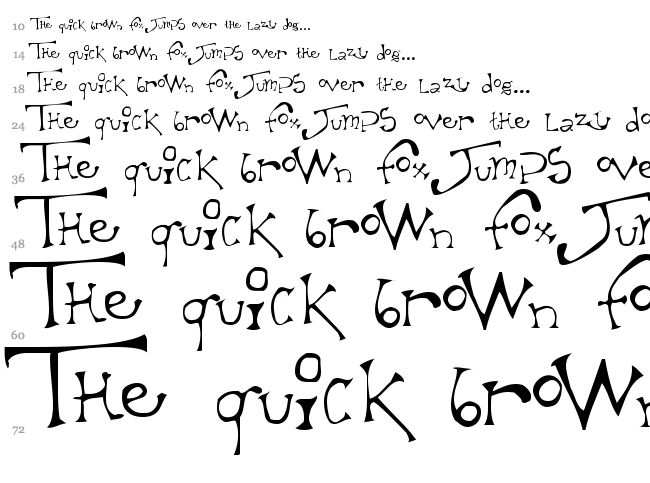 10 The quick brown fox Jumps over the Lazy dog...
14 The quick brown fox Jumps over the Lazy dog...
18 The quick brown fox Jumps over the Lazy dog...
24 The quick brown fox Jumps over the Lazy do
36 The quick brown fox Jumps over
48 The quick brown fox Jum
60 The quick brown fo
72 The quick brown